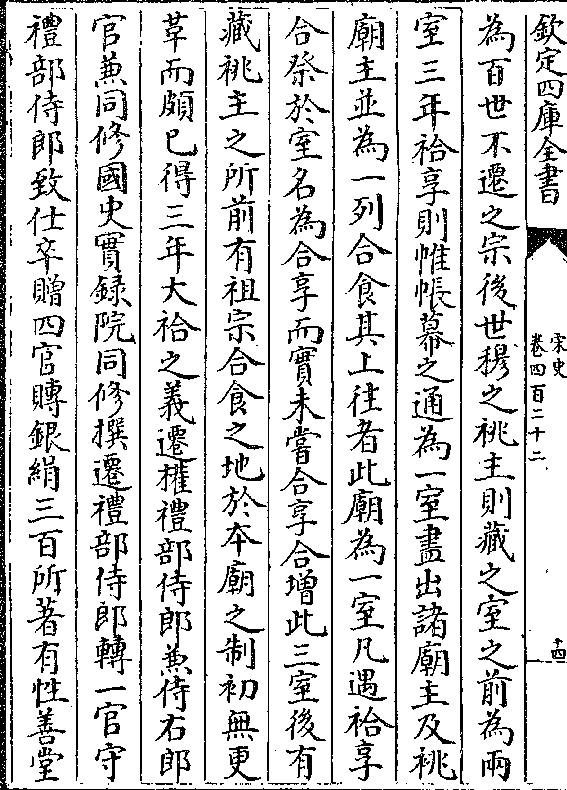 欽定四庫全書
宋史
卷四百二十二
十四
為百世不遷之宗後世穆之祧主則藏之室之前為兩
室三年祫享則帷帳幕之通為一室盡出諸廟主及祧
廟主並為一列合食其上往者此廟為一室凡遇祫享
合祭於室名為合享而實未嘗合享合增此三室後有
藏祧主之所前有祖宗合食之地於本廟之制初無更
革而頗已得三年大祫之義遷權禮部侍郎兼侍右郎
官兼同修國史實録院同修撰遷禮部侍郎轉一官守
禮部侍郎致仕卒贈四官賻銀絹三百所著有性善堂